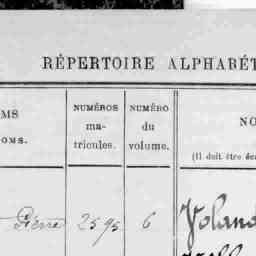 RÉPERTOIRE ALPHABÉT
MS
OMS.
NUMÉROS
ma-
tricules.
NUMÉRO
du
volume.
NO
(Il doit être éc
Pierre 2595 6 Yoland